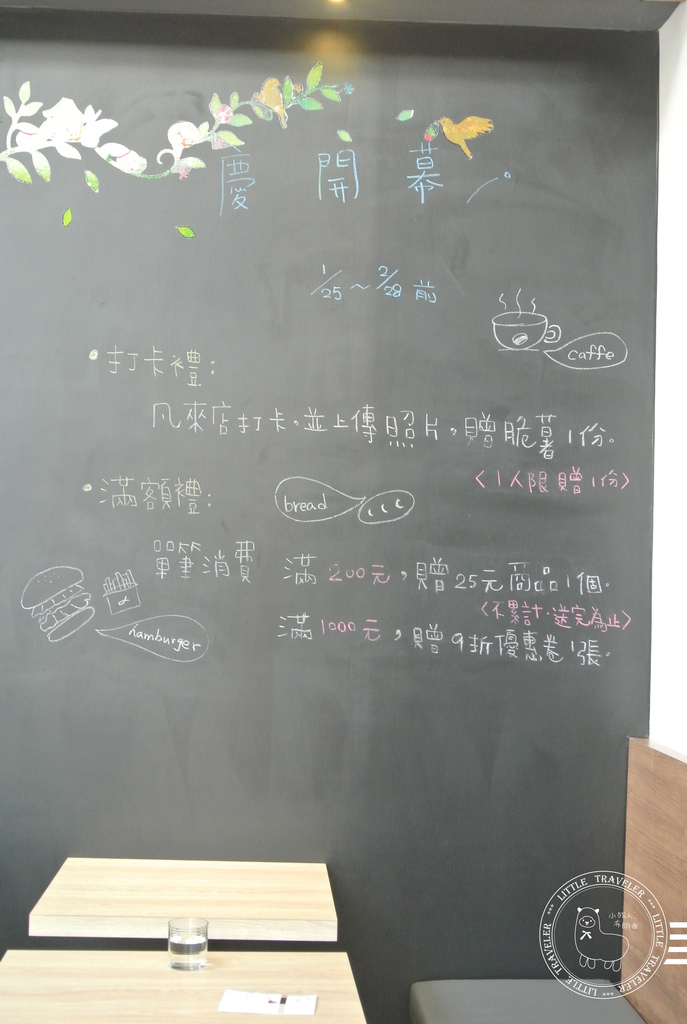 慶開幕
1/25~2/28前
caffe
•打卡禮:
凡來店打卡,並上傳照片,贈脆薯1份。
<1人限贈1份>
•滿額禮:
bread
單筆消費 滿200元,贈25元商品1個。
<不累計·送完為止>
滿1000元,贈9折優惠卷1張。
hamburger
LITTLE TRAVELER
LITTLE TRAVELER
LITTLE TRAVELER